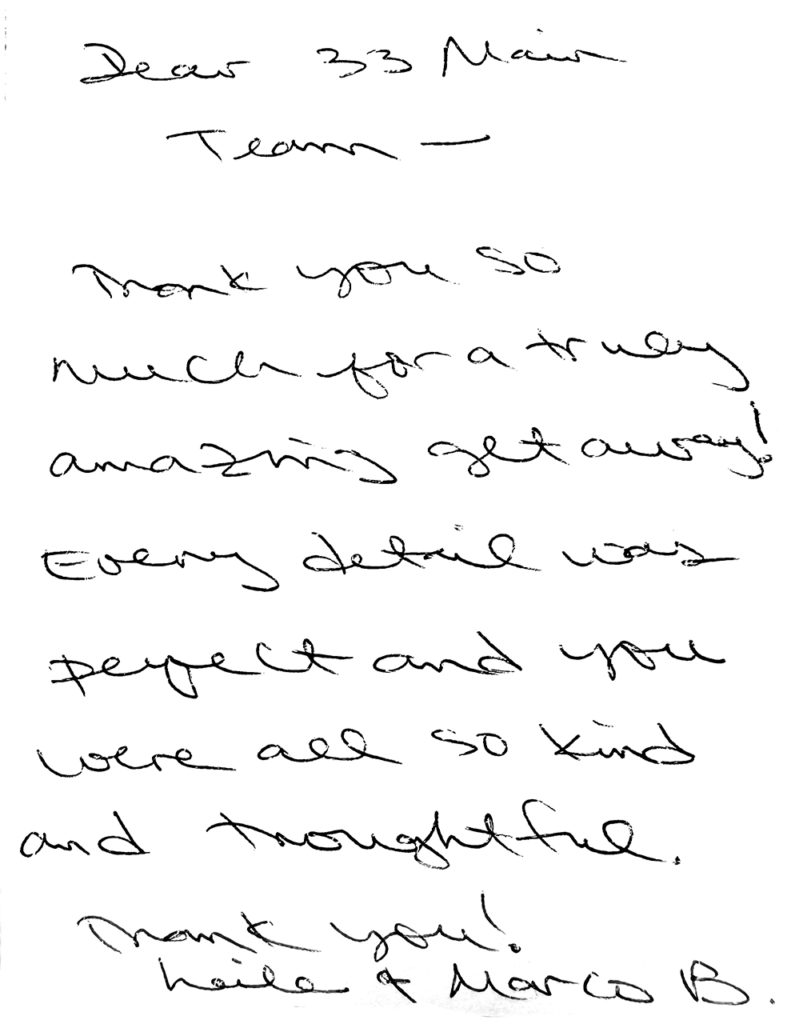 Dear 33 Main
Team —
Thank you so
much for a truly
amazing getaway!
Every detail was
perfect and you
were all so kind
and thoughtful.
Thank you!
Leila & Marco B.